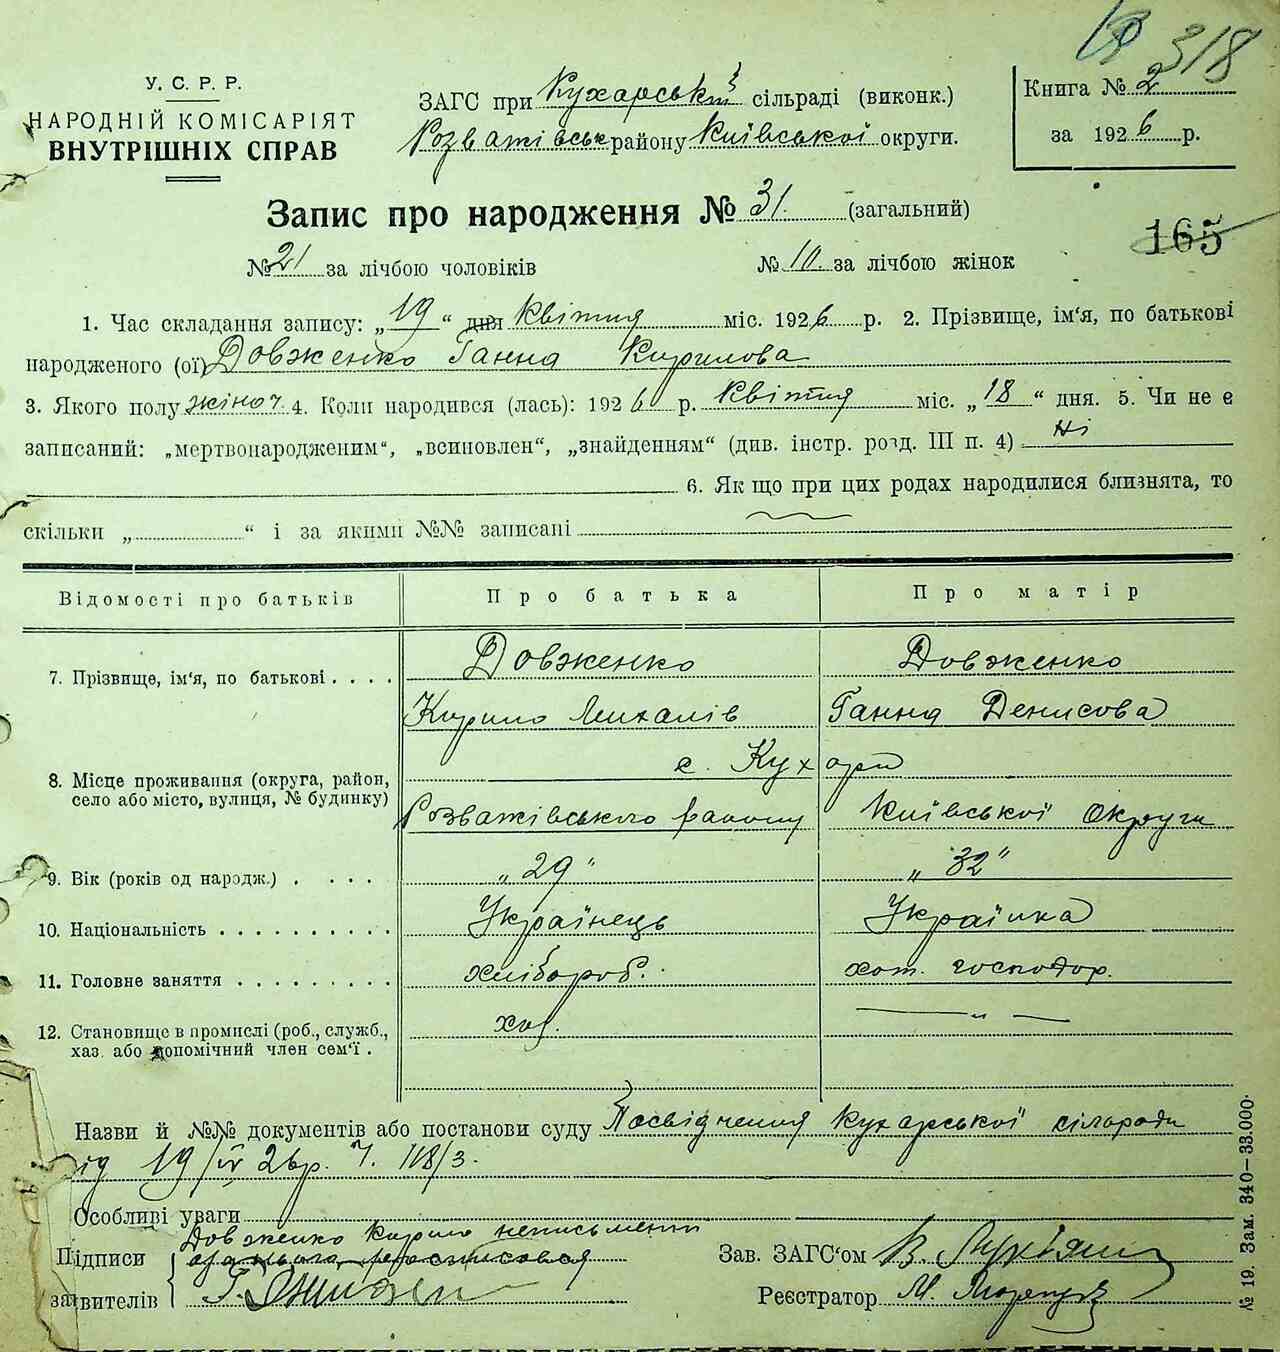 318
У. С. Р. Р.
НАРОДНІЙ КОМІСАРІЯТ
ВНУТРІШНІХ СПРАВ
ЗАГС при Кухарській сільраді (виконк.)
Розважівськ району Київської округи.
Книга № 2
за 1926 р.
Запис про народження № 31. (загальний)
165
№ 21 за лічбою чоловіків № 10. за лічбою жінок
1. Час складання запису: „19“ дня Квітня міс. 1926 р. 2. Прізвище, ім'я, по батькові
народженого (ої) Довженко Ганна Кирилова
3. Якого полу жіноч. 4. Коли народився (лась): 1926 р. Квітня міс. „18“ дня. 5. Чи не є
записаний: „мертвонародженим“, „всиновлен“, „знайденням“ (див. інстр. розд. III п. 4) Ні
6. Як що при цих родах народилися близнята, то
скільки „ “ і за якими №№ записані
Відомості про батьків Про батька Про матір
7. Прізвище, ім'я, по батькові . . . . Довженко Довженко
Кирило Михалів Ганна Денисова
8. Місце проживання (округа, район, с. Кухари
село або місто, вулиця, № будинку) Розважівського району Київської Округи
9. Вік (років од народж.) . . . . „29“ „32“
10. Національність . . . . . . . . . . Українець Українка
11. Головне заняття . . . . . . . . . хлібороб. хат. господар.
12. Становище в промислі (роб., служб., хаз. — „ —
хаз. або допомічний член сем'ї .
Назви й №№ документів або постанови суду Посвідчення Кухарської сілради
від 19/IV 26р. Ч. 118/3.
Особливі уваги
Підписи Довженко Кирило неписьменн
за нього росписався
заявителів
Зав. ЗАГС'ом В.
Реєстратор М.
№ 19. Зам. 340—33.000.